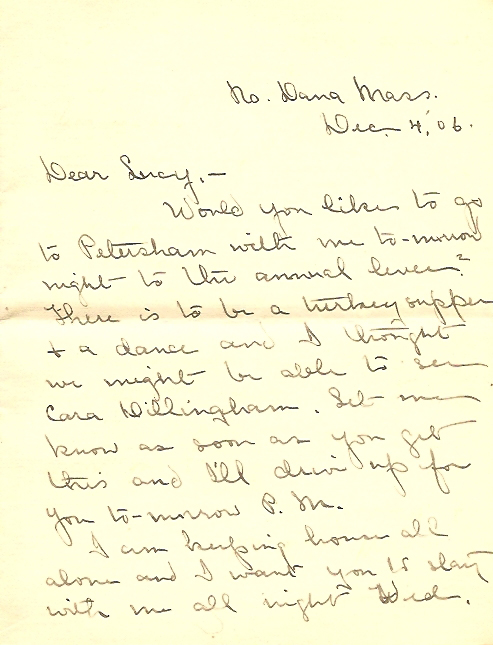 No. Dana Mass.
Dec. 4, '06.
Dear Lucy,—
Would you like to go
to Petersham with me to-morrow
night to the annual levee?
There is to be a turkey supper
+ a dance and I thought
we might be able to see
Cara Dillingham. Let me
know as soon as you get
this and I'll drive up for
you to-morrow P. M.
I am keeping house all
alone and I want you to stay
with me all night Wed.